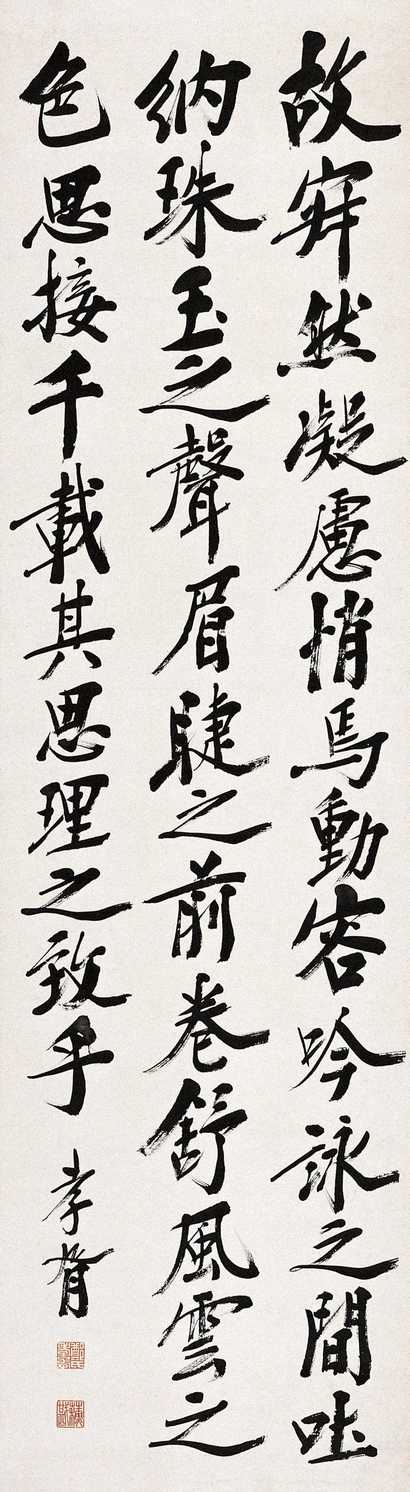 故寂然凝慮悄焉動容吟詠之間吐
納珠玉之聲眉睫之前卷舒風雲之
色思接千載其思理之致乎
孝胥